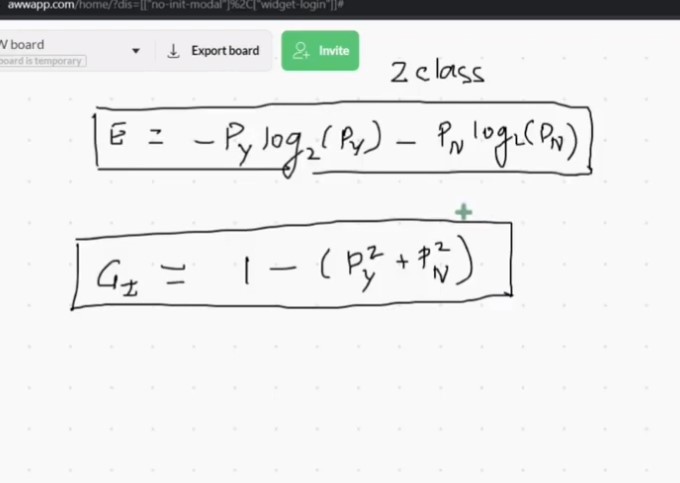 awwapp.com/home/?dis=[["no-init-modal"]%2C["widget-login"]]#
board
board is temporary
Export board
Invite
2 class
E = - P_Y log_2 (P_Y) - P_N log_2 (P_N)
G_I = 1 - (P_Y^2 + P_N^2)